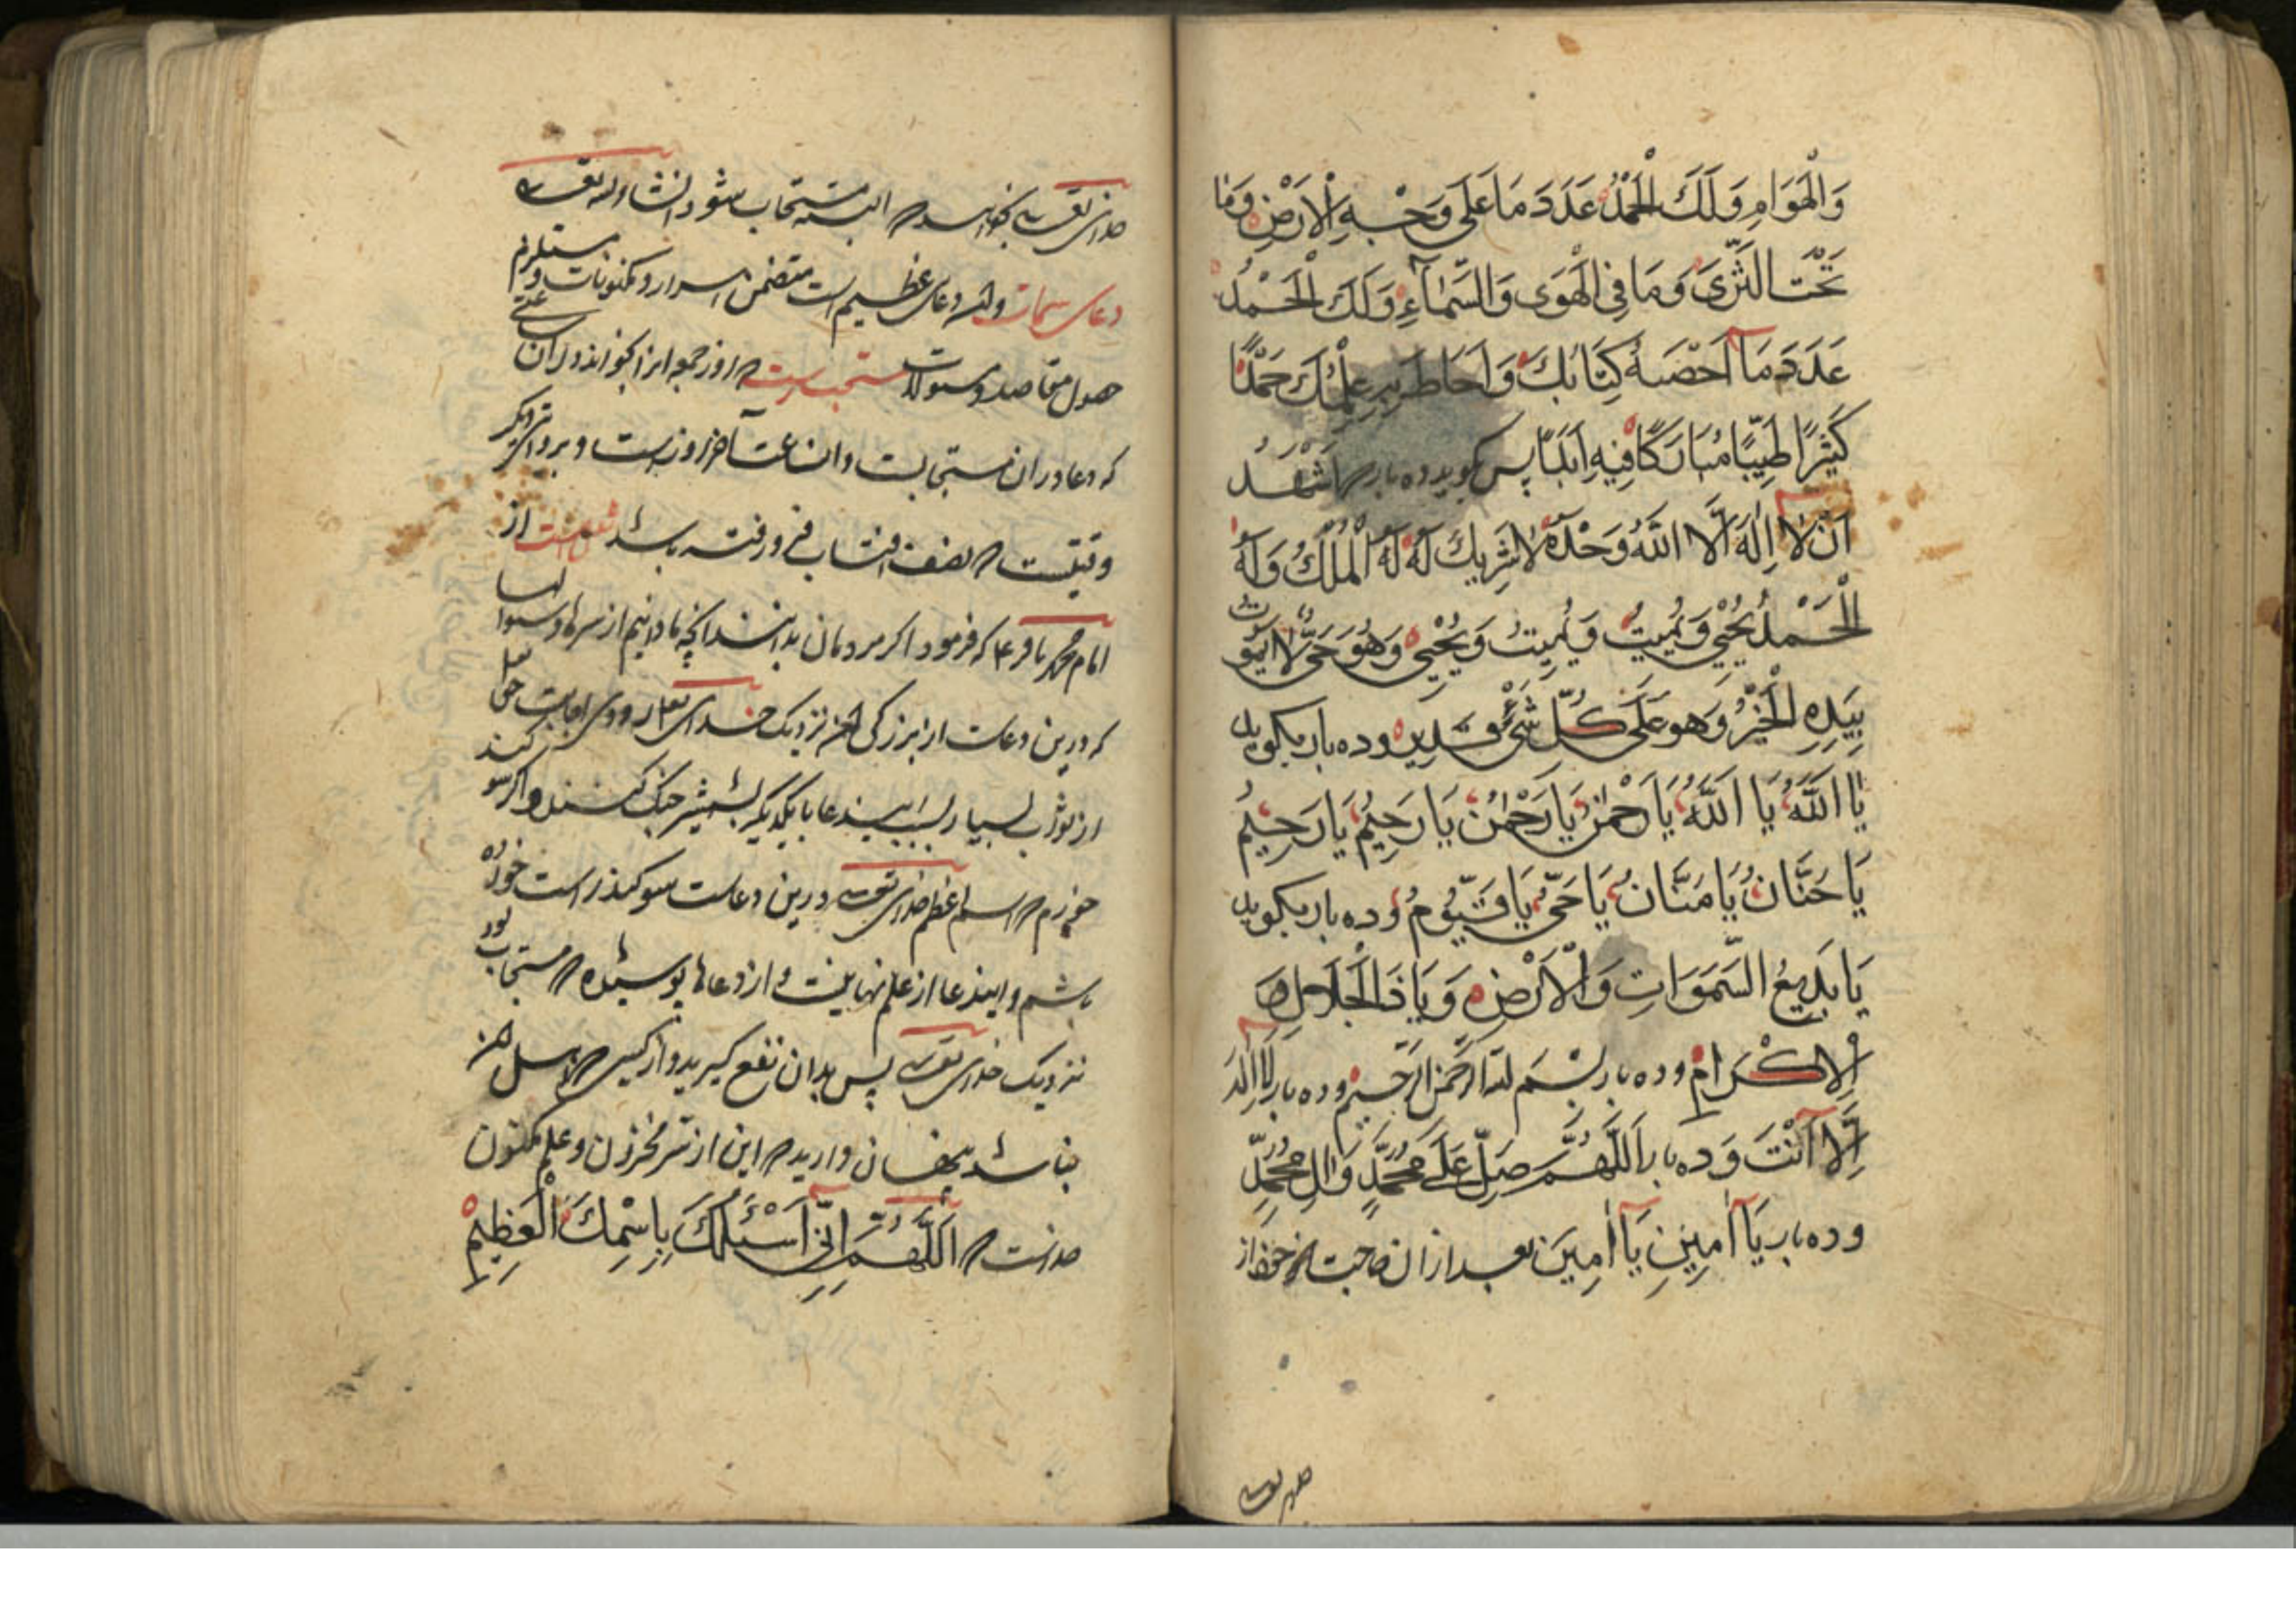 وَالْهَوَامِ وَلَكَ الْحَمْدُ عَدَدَ مَا عَلَى وَجْهِ الْاَرْضِ وَمَا
تَحْتَ الثَّرَى وَمَا فِي الْهَوَى وَالسَّمَاءِ وَلَكَ الْحَمْدُ
عَدَدَ مَا اَحْصَىهُ كِتَابُكَ وَاَحَاطَ بِهِ عِلْمُكَ حَمْدًا
كَثِيرًا طَيِّبًا مُبَارَكًا فِيهِ اَبَدًا پس کوید ده بار اَشْهَدُ
اَنْ لَا اِلَهَ اِلَّا اللَّهُ وَحْدَهُ لَا شَرِيكَ لَهُ لَهُ الْمُلْكُ وَلَهُ
الْحَمْدُ يُحْيِي وَيُمِيتُ وَيُمِيتُ وَيُحْيِي وَهُوَ حَيٌّ لَا يَمُوتُ
بِيَدِهِ الْخَيْرُ وَهُوَ عَلَى كُلِّ شَيْءٍ قَدِيرٌ وده بار بکوید
يَا اَللَّهُ يَا اَللَّهُ يَا رَحْمٰنُ يَا رَحْمٰنُ يَا رَحِيمُ يَا رَحِيمُ
يَا حَنَّانُ يَا مَنَّانُ يَا حَيُّ يَا قَيُّومُ وده بار بکوید
يَا بَدِيعُ السَّمَوَاتِ وَالْاَرْضِ وَيَا ذَا الْجَلَالِ وَ
الْاِكْرَامِ وده بار بسم الله الرحمن الرحيم وده بار لَا اِلَهَ
اِلَّا اَنْتَ وَده بار اَللَّهُمَّ صَلِّ عَلَى مُحَمَّدٍ وَالِ مُحَمَّدٍ
وده بار يَا اٰمِينَ يَا اٰمِينَ بعد از ان حاجت خود از
خدای تعالی
خدای تعالی بخواهد که البته مستجاب شود انشاء الله تعالی
دعای سمات واین دعای عظیم است متضمن اسرار و مکنونات و مستلزم
حصول مقاصد و مسؤلات مستحب است که روز جمعه انرا بخوانند در ان ساعتی
که دعا در ان مستجابست وان ساعت آخر روزست و بروایتی دیکر
وقتیست که نصف افتاب فرو رفته باشد نقل است از
امام محمد باقر ع که فرمود اکر مردمان بدانند انچه ما دانیم از سرها و
که درین دعاست از بزرکی نزدیک خدای تعالی و زودی اجابت
از ثواب بسیار با یکدیکر بشمشیر جنک کنند و اکر سوکند
خورم که اسم اعظم خدای تعالی درین دعاست سوکند راست خورده
باشم و این دعا از علم نهانیست و از دعاها پوشیده که مستجاب بود
نزدیک خدای تعالی پس بدان نفع کیرید و از کسی که اهل
نباشد پنهان دارید که این از سر مخزون و علم مکنون
خداست که اَللَّهُمَّ اِنِّي اَسْئَلُكَ بِاسْمِكَ الْعَظِيمِ